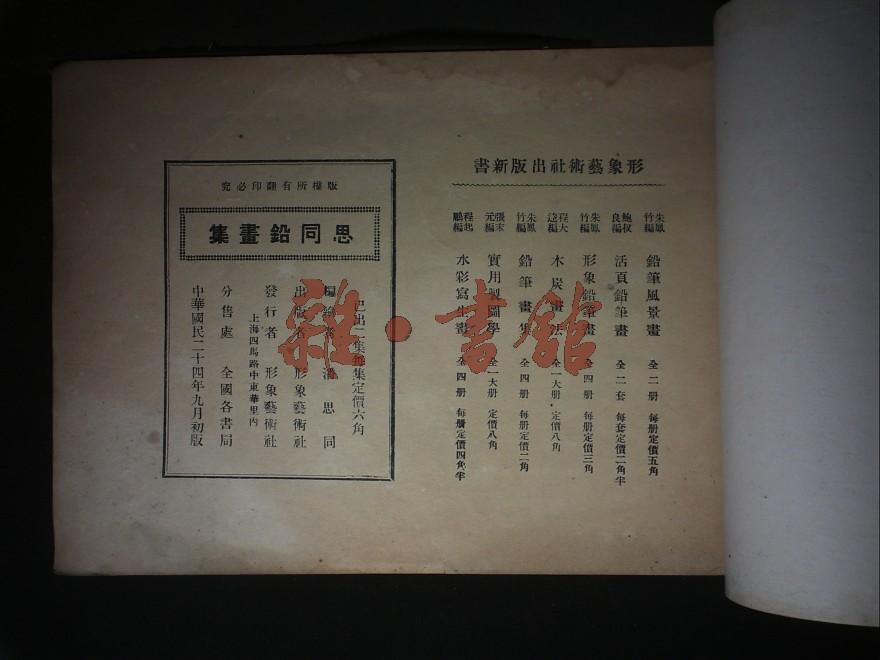 形象藝術社出版新書
朱鳳竹編 鉛筆風景畫 全二册 每册定價五角
鮑叔良編 活頁鉛筆畫 全二套 每套定價二角半
朱鳳竹編 形象鉛筆畫 全四册 每册定價三角
程大編 木炭畫法 全一大册 定價八角
朱鳳竹編 鉛筆畫集 全四册 每册定價二角
張末元編 實用製圖學 全一大册 定價八角
程起鵬編 水彩寫生畫 全四册 每册定價四角半
版權所有翻印必究
思同鉛畫集
已出二集每集定價六角
編繪者 潘思同
出版者 形象藝術社
發行者 形象藝術社
上海四馬路中東華里內
分售處 全國各書局
中華國民二十四年九月初版
雜·書館